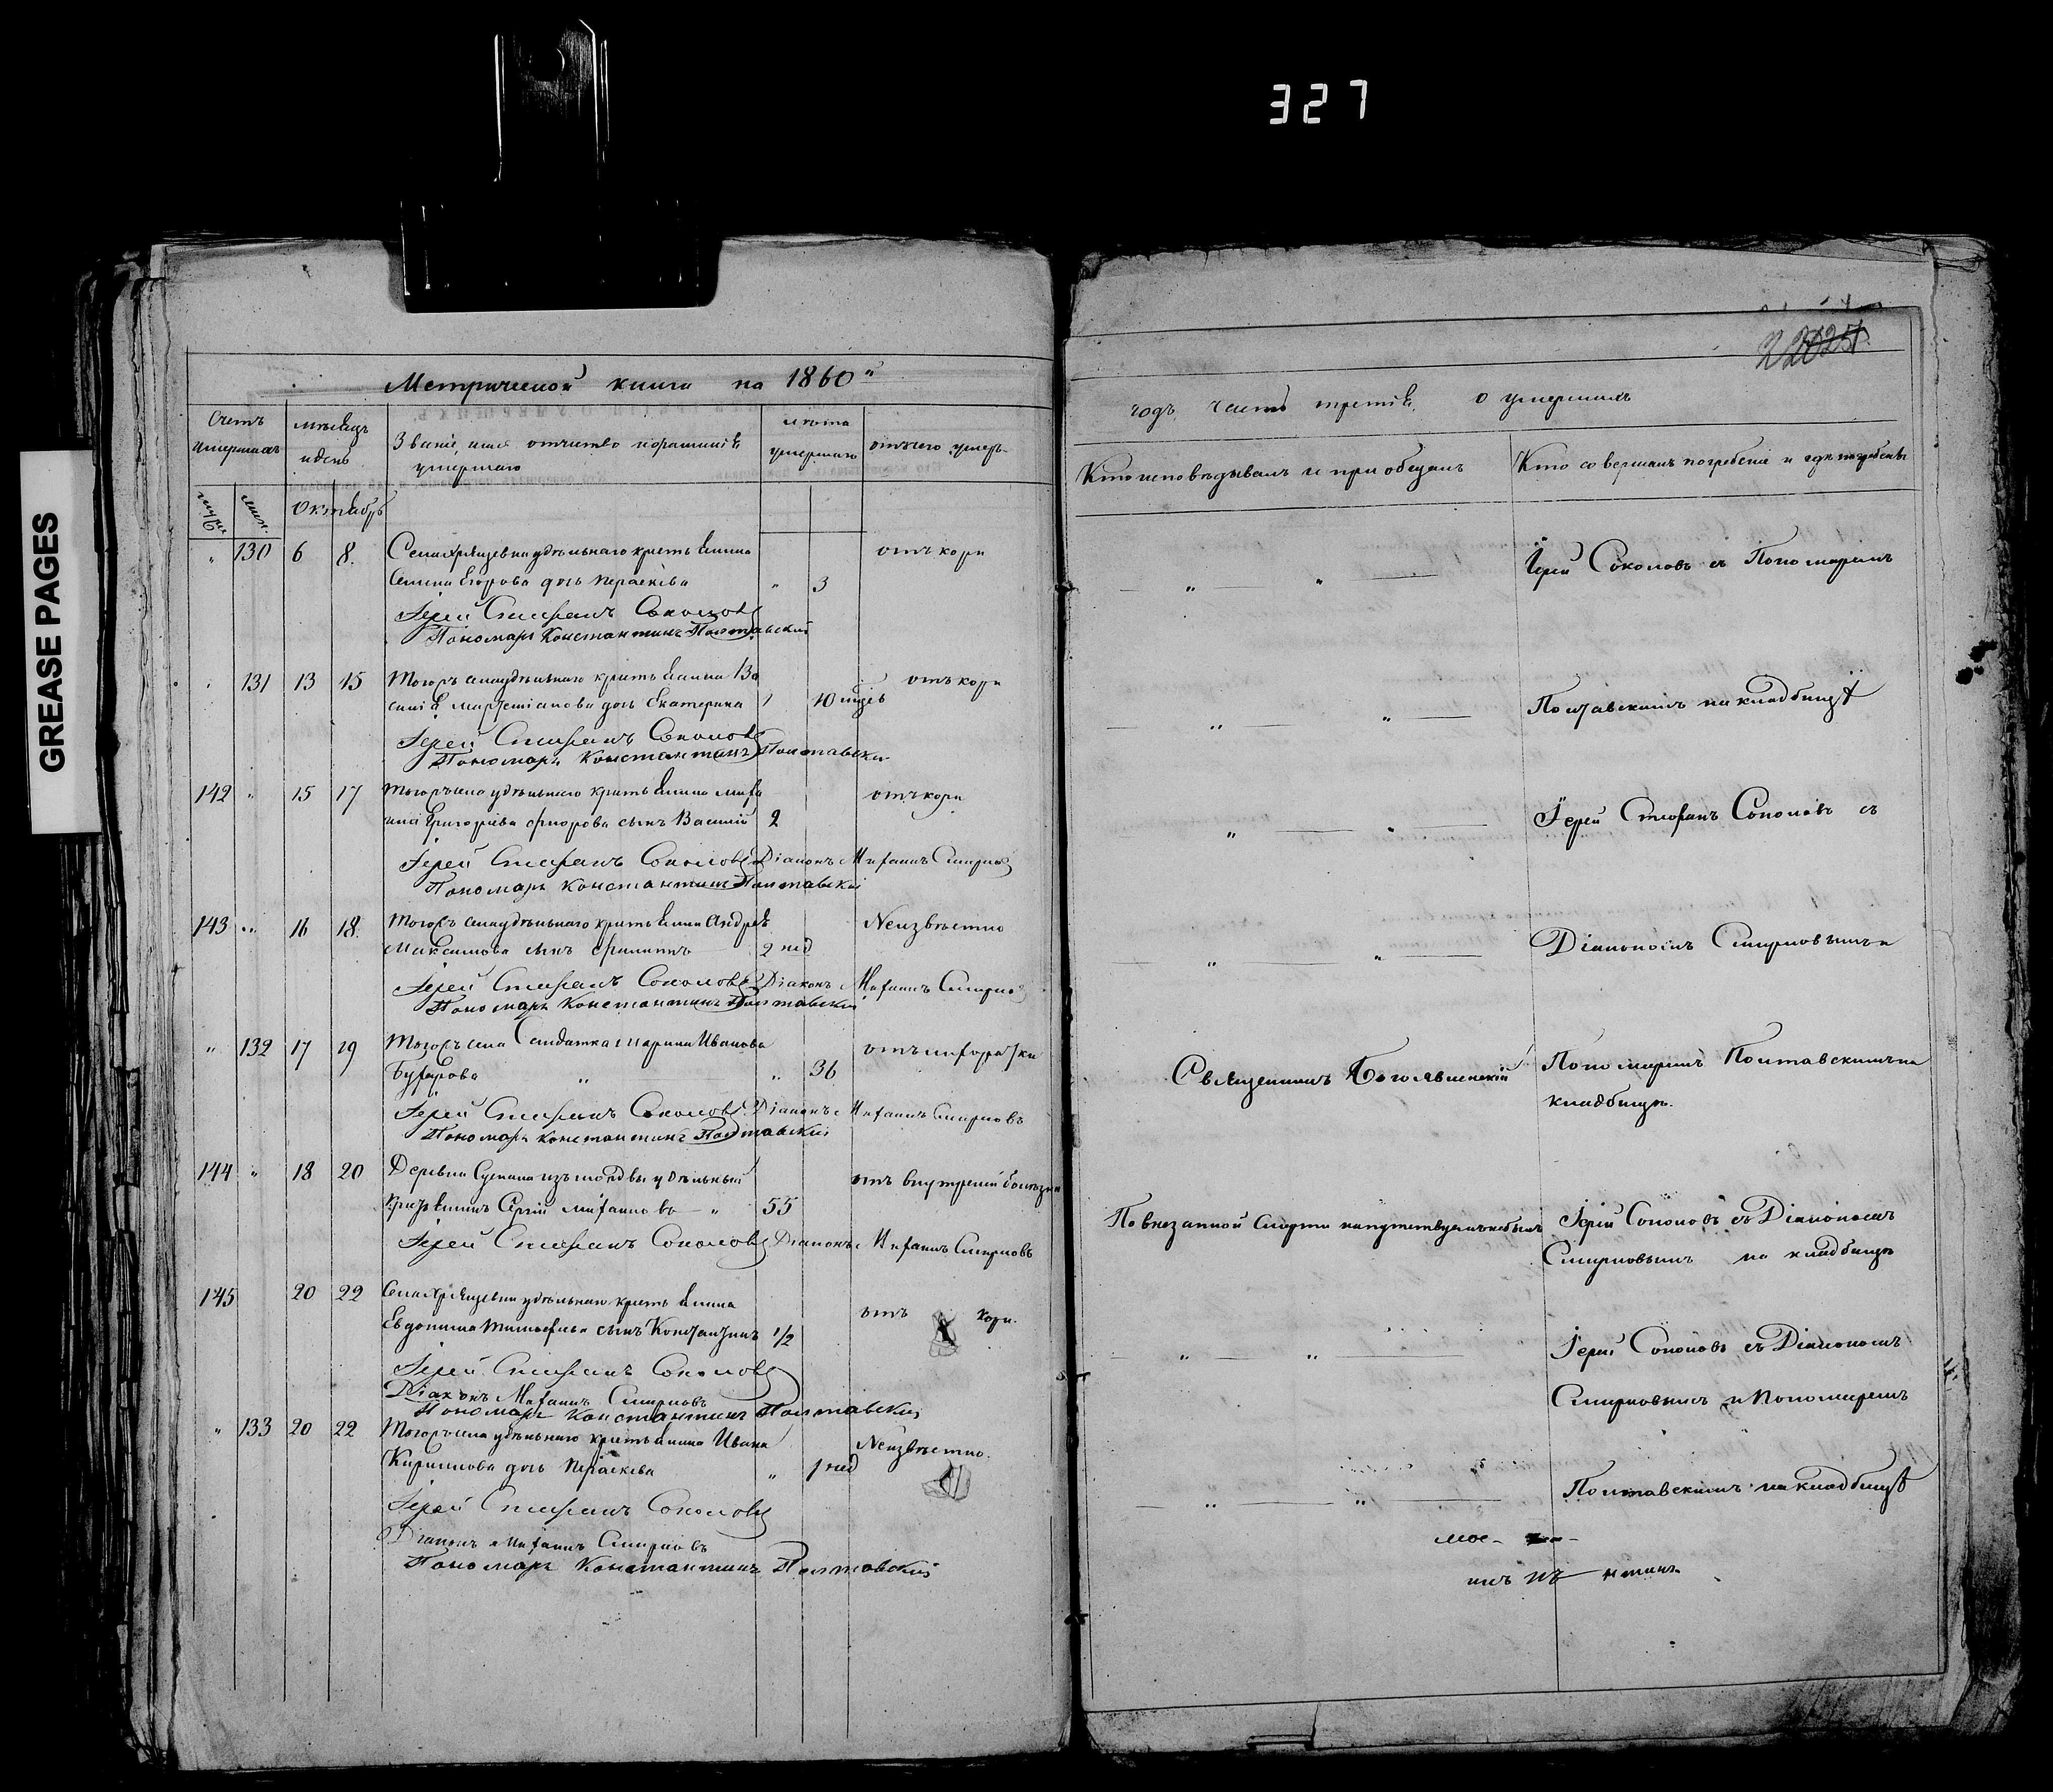 327
GREASE PAGES
Метрической книги на 1860й
Счетъ умершихъ
мѣсяцъ и день
Званіе, имя отчество и фамилія умершаго
лѣта умершаго
отчего умеръ
муж
жен
Октябрь
130 6 8. Села удѣльнаго крестьянина отъ кори
Семена Егорова дочь Параскева 3
Іерей Стефанъ Соколовъ
Пономарь Константинъ Полтавскій
131 13 15 Тогожъ села удѣльнаго крестьянина отъ кори
дочь Екатерина 1 10 мцѣв
Іерей Стефанъ Соколовъ
Пономарь Константинъ Полтавскій
142 " 15 17 Тогожъ села удѣльнаго крестьянина отъ кори
Григорьева сынъ Василій 2
Іерей Стефанъ Соколовъ Діаконъ Михаилъ Смирновъ
Пономарь Константинъ Полтавскій
143 " 16 18. Тогожъ села удѣльнаго крестьянина Андрея Неизвѣстно
Максимова сынъ Филиппъ 2 нед
Іерей Стефанъ Соколовъ Діаконъ Михаилъ Смирновъ
Пономарь Константинъ Полтавскій
" 132 17 19 Тогожъ села Солдатка Марина Иванова отъ лихорадки
" " 36
Іерей Стефанъ Соколовъ Діаконъ Михаилъ Смирновъ
Пономарь Константинъ Полтавскій
144 " 18 20 Деревни изъ мордвы удѣльный отъ внутреней болѣзни
крестьянинъ Сергій Михаиловъ " 55
Іерей Стефанъ Соколовъ Діаконъ Михаилъ Смирновъ
145 20 22 Села удѣльнаго крестьянина отъ кори.
Евдокима Тимофеева сынъ Константинъ 1/2
Іерей Стефанъ Соколовъ
Діаконъ Михаилъ Смирновъ
Пономарь Константинъ Полтавскій
" 133 20 22 Тогожъ села удѣльнаго крестьянина Ивана Неизвѣстно.
Кирилова дочь Параскева " 1 нед
Іерей Стефанъ Соколовъ
Діаконъ Михаилъ Смирновъ
Пономарь Константинъ Полтавскій
годъ часть третія о умершихъ
Кто исповѣдывалъ и пріобщалъ
Кто совершалъ погребеніе и гдѣ погребены
Іерей Соколовъ съ Пономаремъ
Полтавскимъ на кладбищѣ
Іерей Стефанъ Соколовъ съ
Діакономъ Смирновымъ и
Священникъ Богоявленскій Пономаремъ Полтавскимъ на
кладбищѣ.
По внезапной смерти напутствуемъ небылъ Іерей Соколовъ съ Діакономъ
Смирновымъ на кладбищѣ
Іерей Соколовъ съ Діакономъ
Смирновымъ и Пономаремъ
Полтавскимъ на кладбищѣ